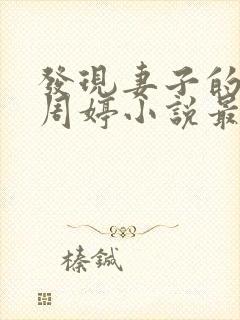 發現妻子的
周婷小說最
榛鍼